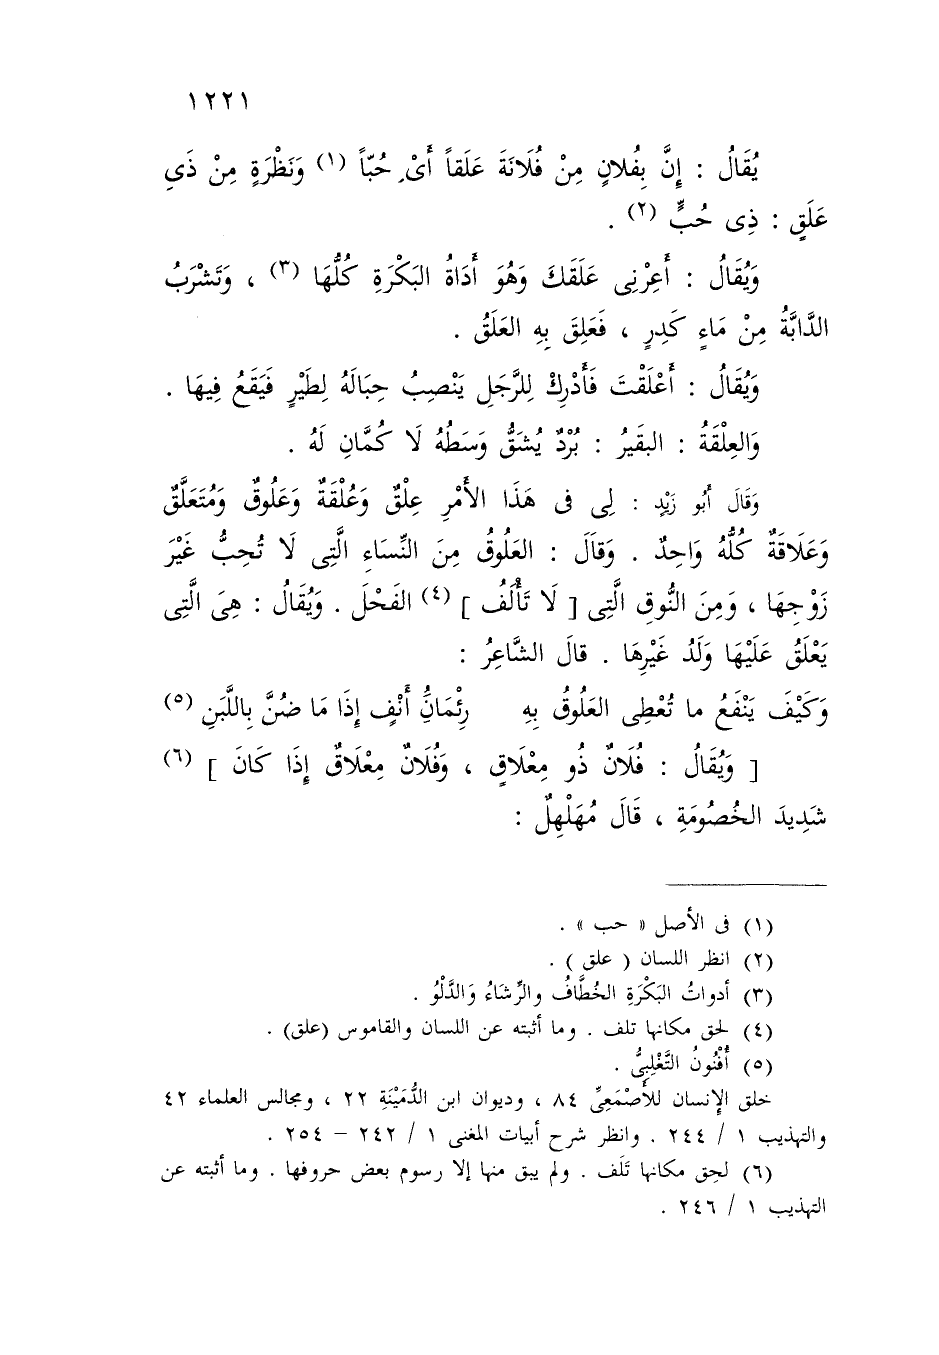 ١٢٢١
يُقَالُ : إِنَّ بِفُلانٍ مِنْ فُلَانَةَ عَلَقاً أَىْ حُبّاً (١) وَنَظْرَةٍ مِنْ ذَىِ
عَلَقٍ : ذِى حُبٍّ (٢) .
وَيُقَالُ : أَعِرْنِى عَلَقَكَ وَهُوَ أَدَاةُ البَكْرَةِ كُلُّهَا (٣) ، وَتَشْرَبُ
الدَّابَّةُ مِنْ مَاءٍ كَدِرٍ ، فَعَلِقَ بِهِ العَلَقُ .
وَيُقَالُ : أَعْلَقْتَ فَأَدْرِكْ لِلرَّجَلِ يَنْصِبُ حِبَالَهُ لِطَيْرٍ فَيَقَعُ فِيهَا .
وَالعِلْقَةُ : البَقيرُ : بُرْدٌ يُشَقُّ وَسَطُهُ لَا كُمَّانِ لَهُ .
وَقَالَ أَبُو زَيْدٍ : لِى فى هَذَا الأَمْرِ عِلْقٌ وَعُلْقَةٌ وَعَلُوقٌ وَمُتَعَلَّقٌ
وَعَلَاقَةٌ كُلُّهُ وَاحِدٌ . وَقاَلَ : العَلُوقُ مِنَ النِّسَاءِ الَّتِى لَا تُحِبُّ غَيْرَ
زَوْجِهَا ، وَمِنَ النُّوقِ الَّتِى [ لَا تَأْلَفُ ] (٤) الفَحْلَ . وَيُقَالُ : هِىَ الَّتِى
يَعْلَقُ عَلَيْهَا وَلَدُ غَيْرِهَا . قالَ الشَّاعِرُ :
وَكَيْفَ يَنْفَعُ ما تُعْطِى العَلُوقُ بِهِ رِئْمَانَُِ أَنْفٍ إِذَا مَا ضُنَّ بِاللَّبَنِ (٥)
[ وَيُقَالُ : فُلَانٌ ذُو مِعْلَاقٍ ، وَفُلَانٌ مِعْلَاقٌ إِذَا كَانَ ] (٦)
شَدِيدَ الخُصُومَةِ ، قَالَ مُهَلْهِلٌ :
(١) فى الأصل « حب » .
(٢) انظر اللسان ( علق ) .
(٣) أدواتُ البَكْرَةِ الخُطَّافُ والرِّشَاءُ وَالدَّلْوُ .
(٤) لحق مكانها تلف . وما أثبته عن اللسان والقاموس (علق) .
(٥) أُفْنُونُ التَّغْلِبِىُّ .
خلق الإنسان للأَصْمَعِىِّ ٨٤ ، وديوان ابن الدُّمَيْنَةِ ٢٢ ، ومجالس العلماء ٤٢
والتهذيب ١ / ٢٤٤ . وانظر شرح أبيات المغنى ١ / ٢٤٢ – ٢٥٤ .
(٦) لحِق مكانها تَلَف . ولم يبق منها إلا رسوم بعض حروفها . وما أثبته عن
التهذيب ١ / ٢٤٦ .